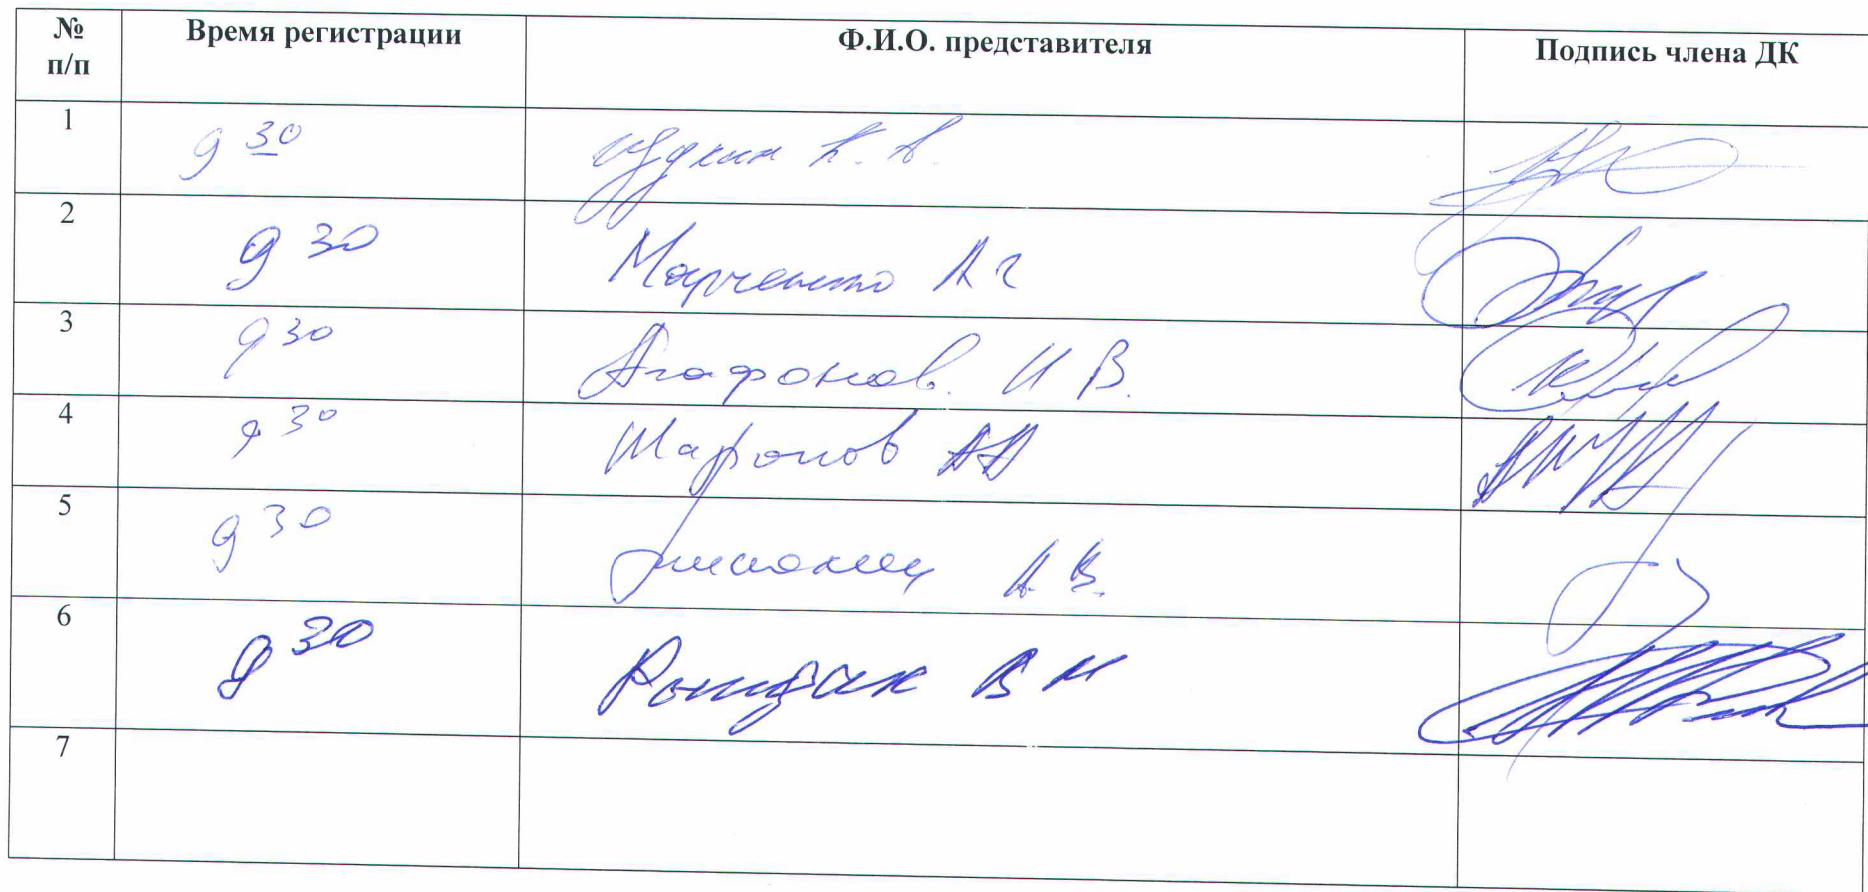 № п/п Время регистрации Ф.И.О. представителя Подпись члена ДК
1 9 30 К. А.
2 9 30 Марченко А Г
3 9 30 Агафонов. И В.
4 9 30 Шаронов АА
5 9 30 А. В.
6 9 30 В Н
7